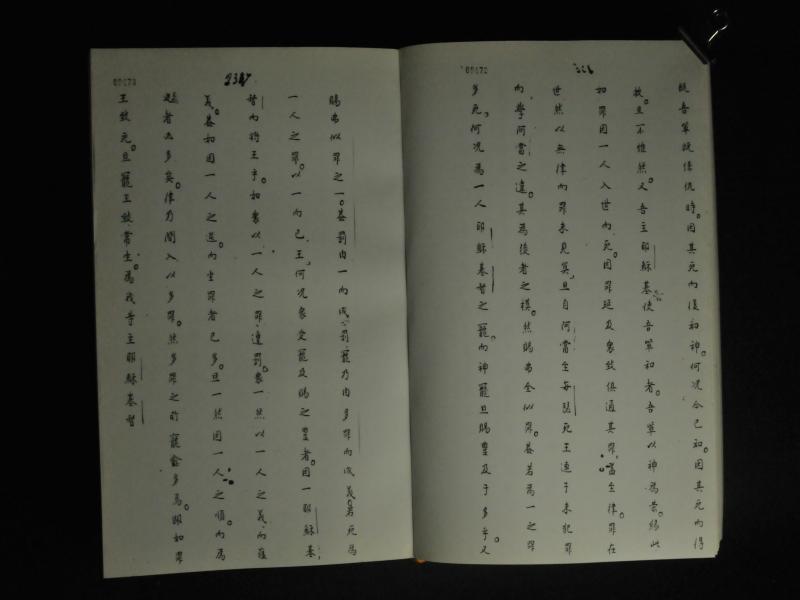 既吾輩旣係仇時。因其死而復和神。何況今已和。因其死而得
救。旦不惟然。又吾主耶穌基使吾輩和者。吾輩以神為榮。緣此
如罪因一人入世而死因罪延及衆致俱通其罪。當坐律罪在
世然以無律而罪未見筭。旦自阿當至每瑟死王連于未犯罪
向學阿當之違。其為後者之模。然賜弗全似罪。蓋若為一之罪
多死。何況為一人耶穌基督之寵。而神寵旦賜豐及于多乎。又
賜弗似罪之一。蓋罰由一而成罰。寵乃由多罪而成義。若死為
一人之罪。以一而已王。何況衆受寵及賜之豐者。因一耶穌基
督而將王乎。如衆以一人之罪遭罰。衆一然以一人之義而獲
義。蓋如因一人之逆。而坐罪者已多。旦一然因一人之順。而為
者亦多矣。律乃間入以多罪。然多罪之所寵愈多焉。眼如罪
王致死。旦寵王致常生。為我等主耶穌基督